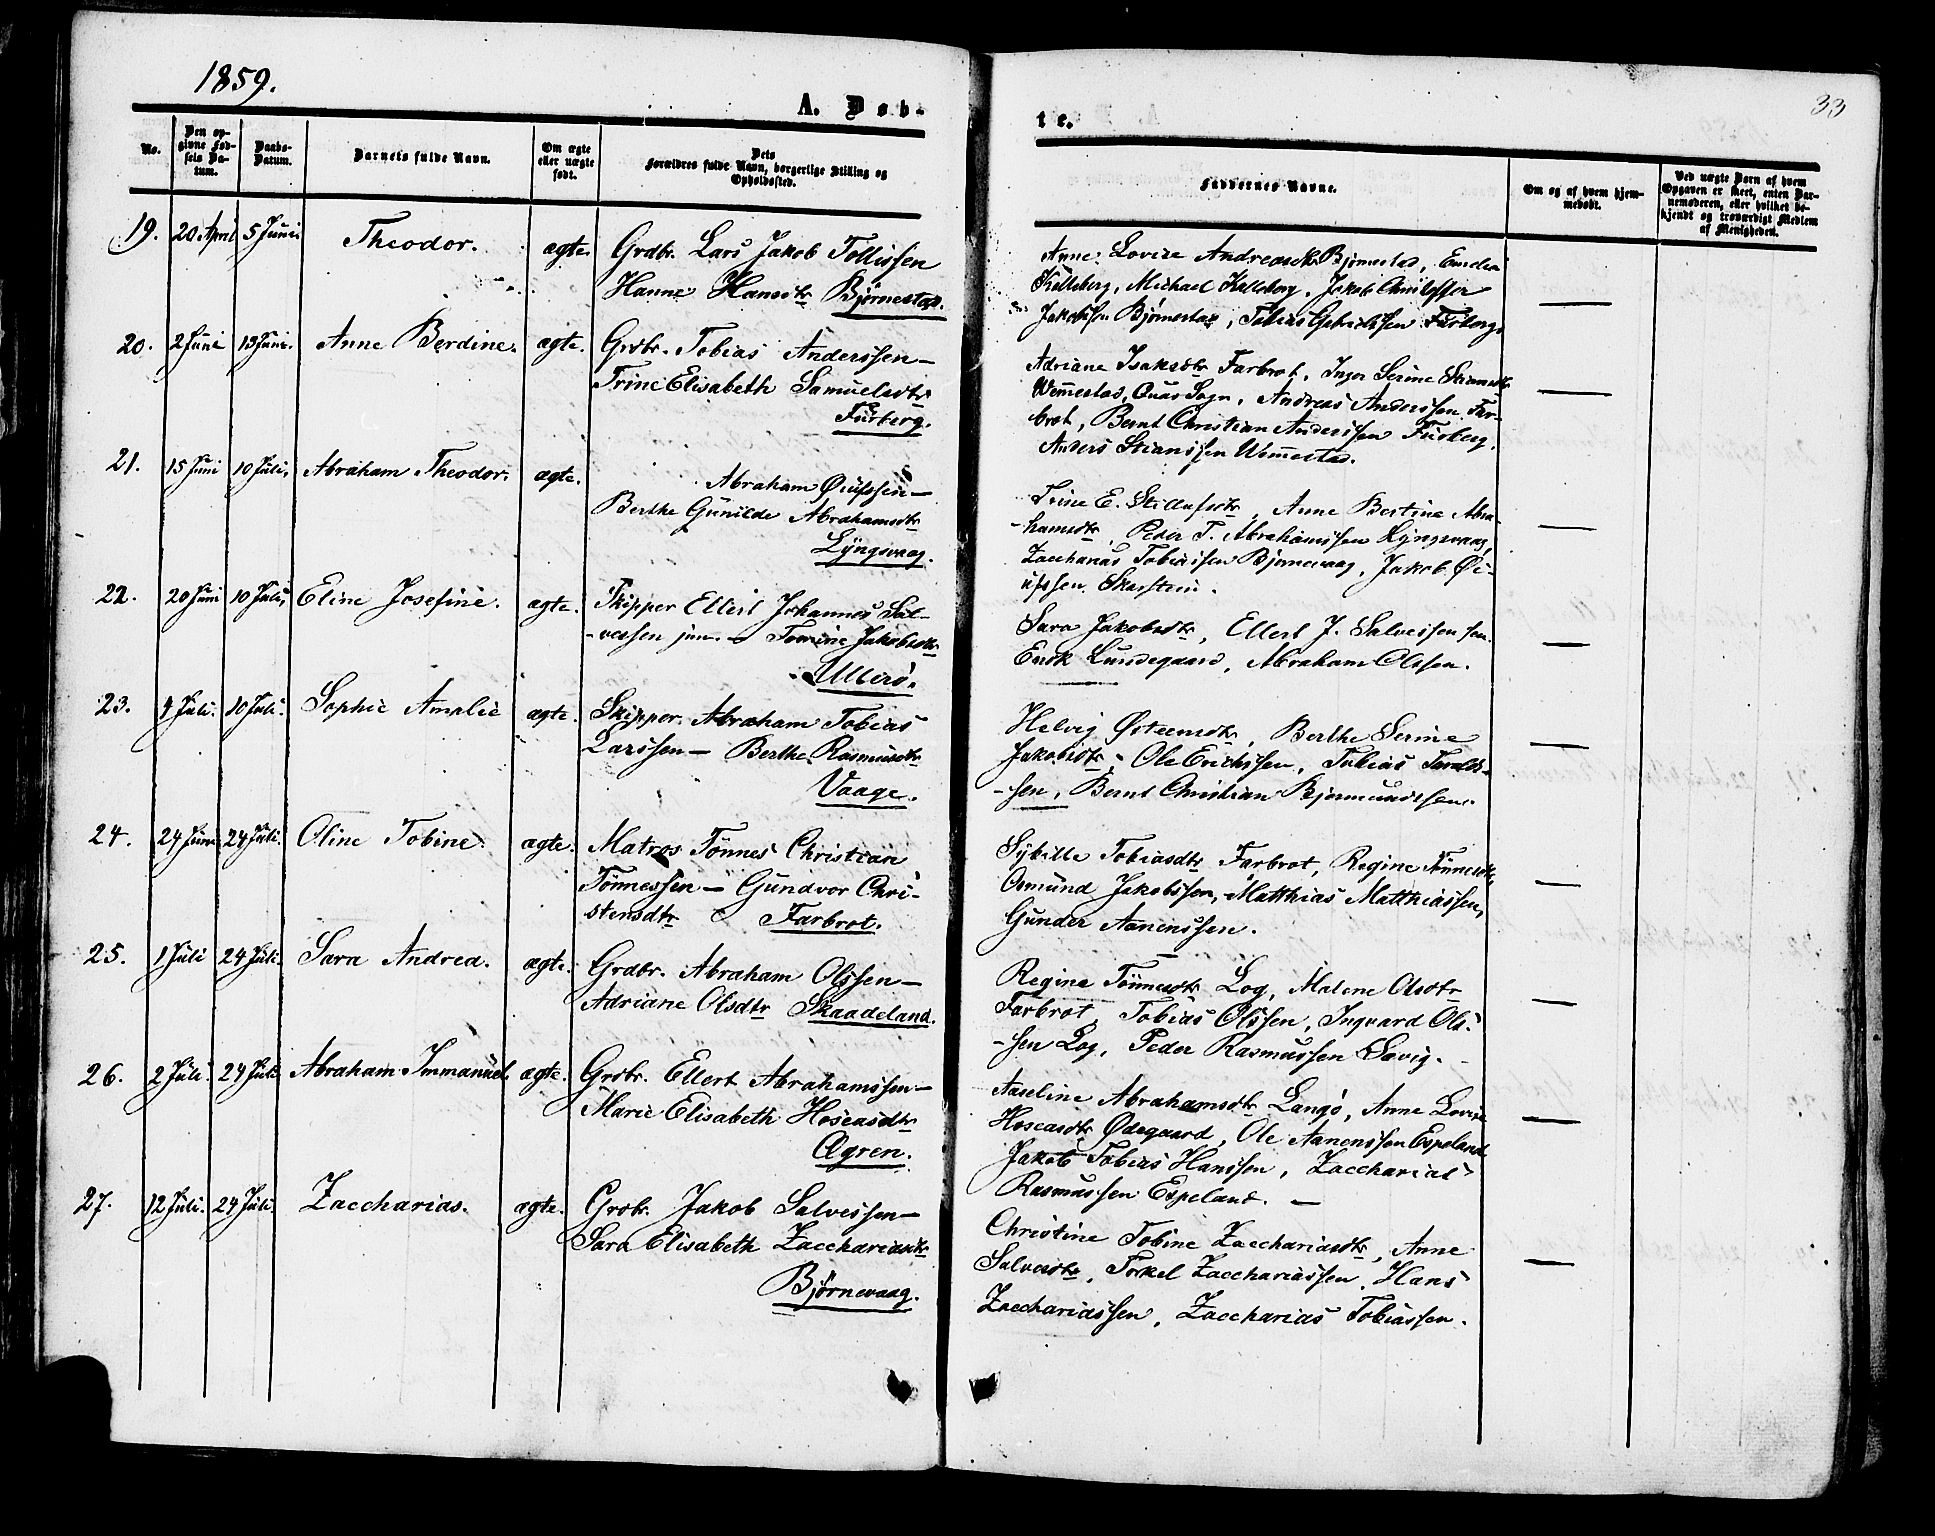 1859.
33
A. Døb-
te.
No.
Den op-
givne Fød-
sels Da-
tum.
Daabs-
Datum.
Barnets fulde Navn.
Om ægte
eller uægte
født.
Dets
Forældres fulde Navn, borgerlige Stilling og
Opholdssted.
Faddernes Navne.
Om og af hvem hjem-
medøbt.
Ved uægte Børn af hvem
Opgaven er skeet, enten Bar-
nemoderen, eller hvilket be-
kjendt og troværdigt Medlem
af Menigheden.
19. 20 April 5 Juni Theodor. ægte. Grdbr. Lars Jakob Tollissen
Hanne Hansdtr Bjørnestad.
Anne Lovise Andreasdtr Bjørnestad,
Kalleberg, Michael Kalleberg, Jakob Christoffer
Jakobsen Bjørnestad, Tobias Gabrielssen Furberg.
20. 2 Juni 13 Juni. Anne Berdine. ægte. Grdbr. Tobias Anderssen —
Trine Elisabeth Samuelsdtr
Furberg.
Adriane Isaksdtr Farbrot, Inger Serine Stiansdtr
Wemmestad, Quås Sogn, Andreas Anderssen Far-
brot, Bernt Christian Anderssen Furberg,
Anders Stianssen Wemmestad.
21. 15 Juni 10 Juli. Abraham Theodor. ægte. Abraham Øiufssen —
Berthe Gunilde Abrahamsdtr
Lyngsvaag.
Trine E. Stillufsdtr, Anne Bertine Abra-
-hamsdtr, Peder T. Abrahamssen Lyngsvaag,
Zaccharias Tobiassen Bjørnevaag, Jakob Øi-
ufssen Skarstein.
22. 20 Juni 10 Juli. Eline Josefine. ægte. Skipper Ellert Johannes Sal-
-vessen jun. — Tomine Jakobsdtr
Ullerø.
Sara Jakobsdtr, Ellert J. Salvessen sen.
Enok Lundegaard, Abraham Olssen.
23. 4 Juli. 10 Juli. Sophie Amalie ægte. Skipper. Abraham Tobias
Larssen — Berthe Rasmusdtr
Vaage.
Helvig Østensdtr, Berthe Serine
Jakobsdtr, Ole Erichssen, Tobias Tarald-
-sen, Bernt Christian Bjørmundssen.
24. 24 Juni 24 Juli. Oline Tobine. ægte. Matros Tønnes Christian
Tønnessen — Gundvor Chri-
stensdtr Farbrot.
Sybille Tobiasdtr Farbrot, Regine Tønnesdtr,
Osmund Jakobssen, Matthias Matthiassen,
Gunder Aanenssen.
25. 1 Juli 24 Juli. Sara Andrea. ægte. Grdbr. Abraham Olssen —
Adriane Olsdtr Skaadeland.
Regine Tønnesdtr Log, Malene Olsdtr
Farbrot, Tobias Olssen, Ingvard Ols-
-sen Log, Peder Rasmussen Savig.
26. 2 Juli. 24 Juli Abraham Immanuel. ægte. Grdbr. Ellert Abrahamssen —
Marie Elisabeth Hoseasdtr
Øgren.
Aaseline Abrahamsdtr Langø, Anne Lovise
Hoseasdtr Ødegaard, Ole Aanenssen Espeland
Jakob Tobias Hanssen, Zaccharias
Rasmussen Espeland. —
27. 12 Juli. 24 Juli. Zaccharias. ægte. Grdbr. Jakob Salvessen —
Sara Elisabeth Zacchariasdtr
Bjørnevaag.
Christine Tobine Zacchariasdtr, Anne
Salvesdtr, Torkel Zacchariassen, Hans
Zacchariassen, Zaccharias Tobiassen.